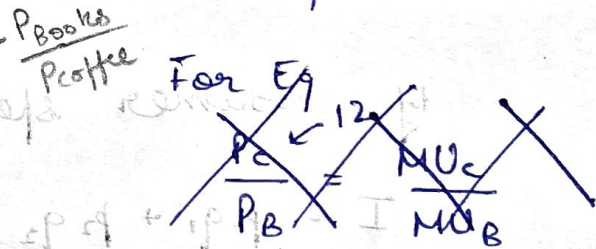 - P Books / P coffee
For Eq
12
Pc / PB = MUc / MUB